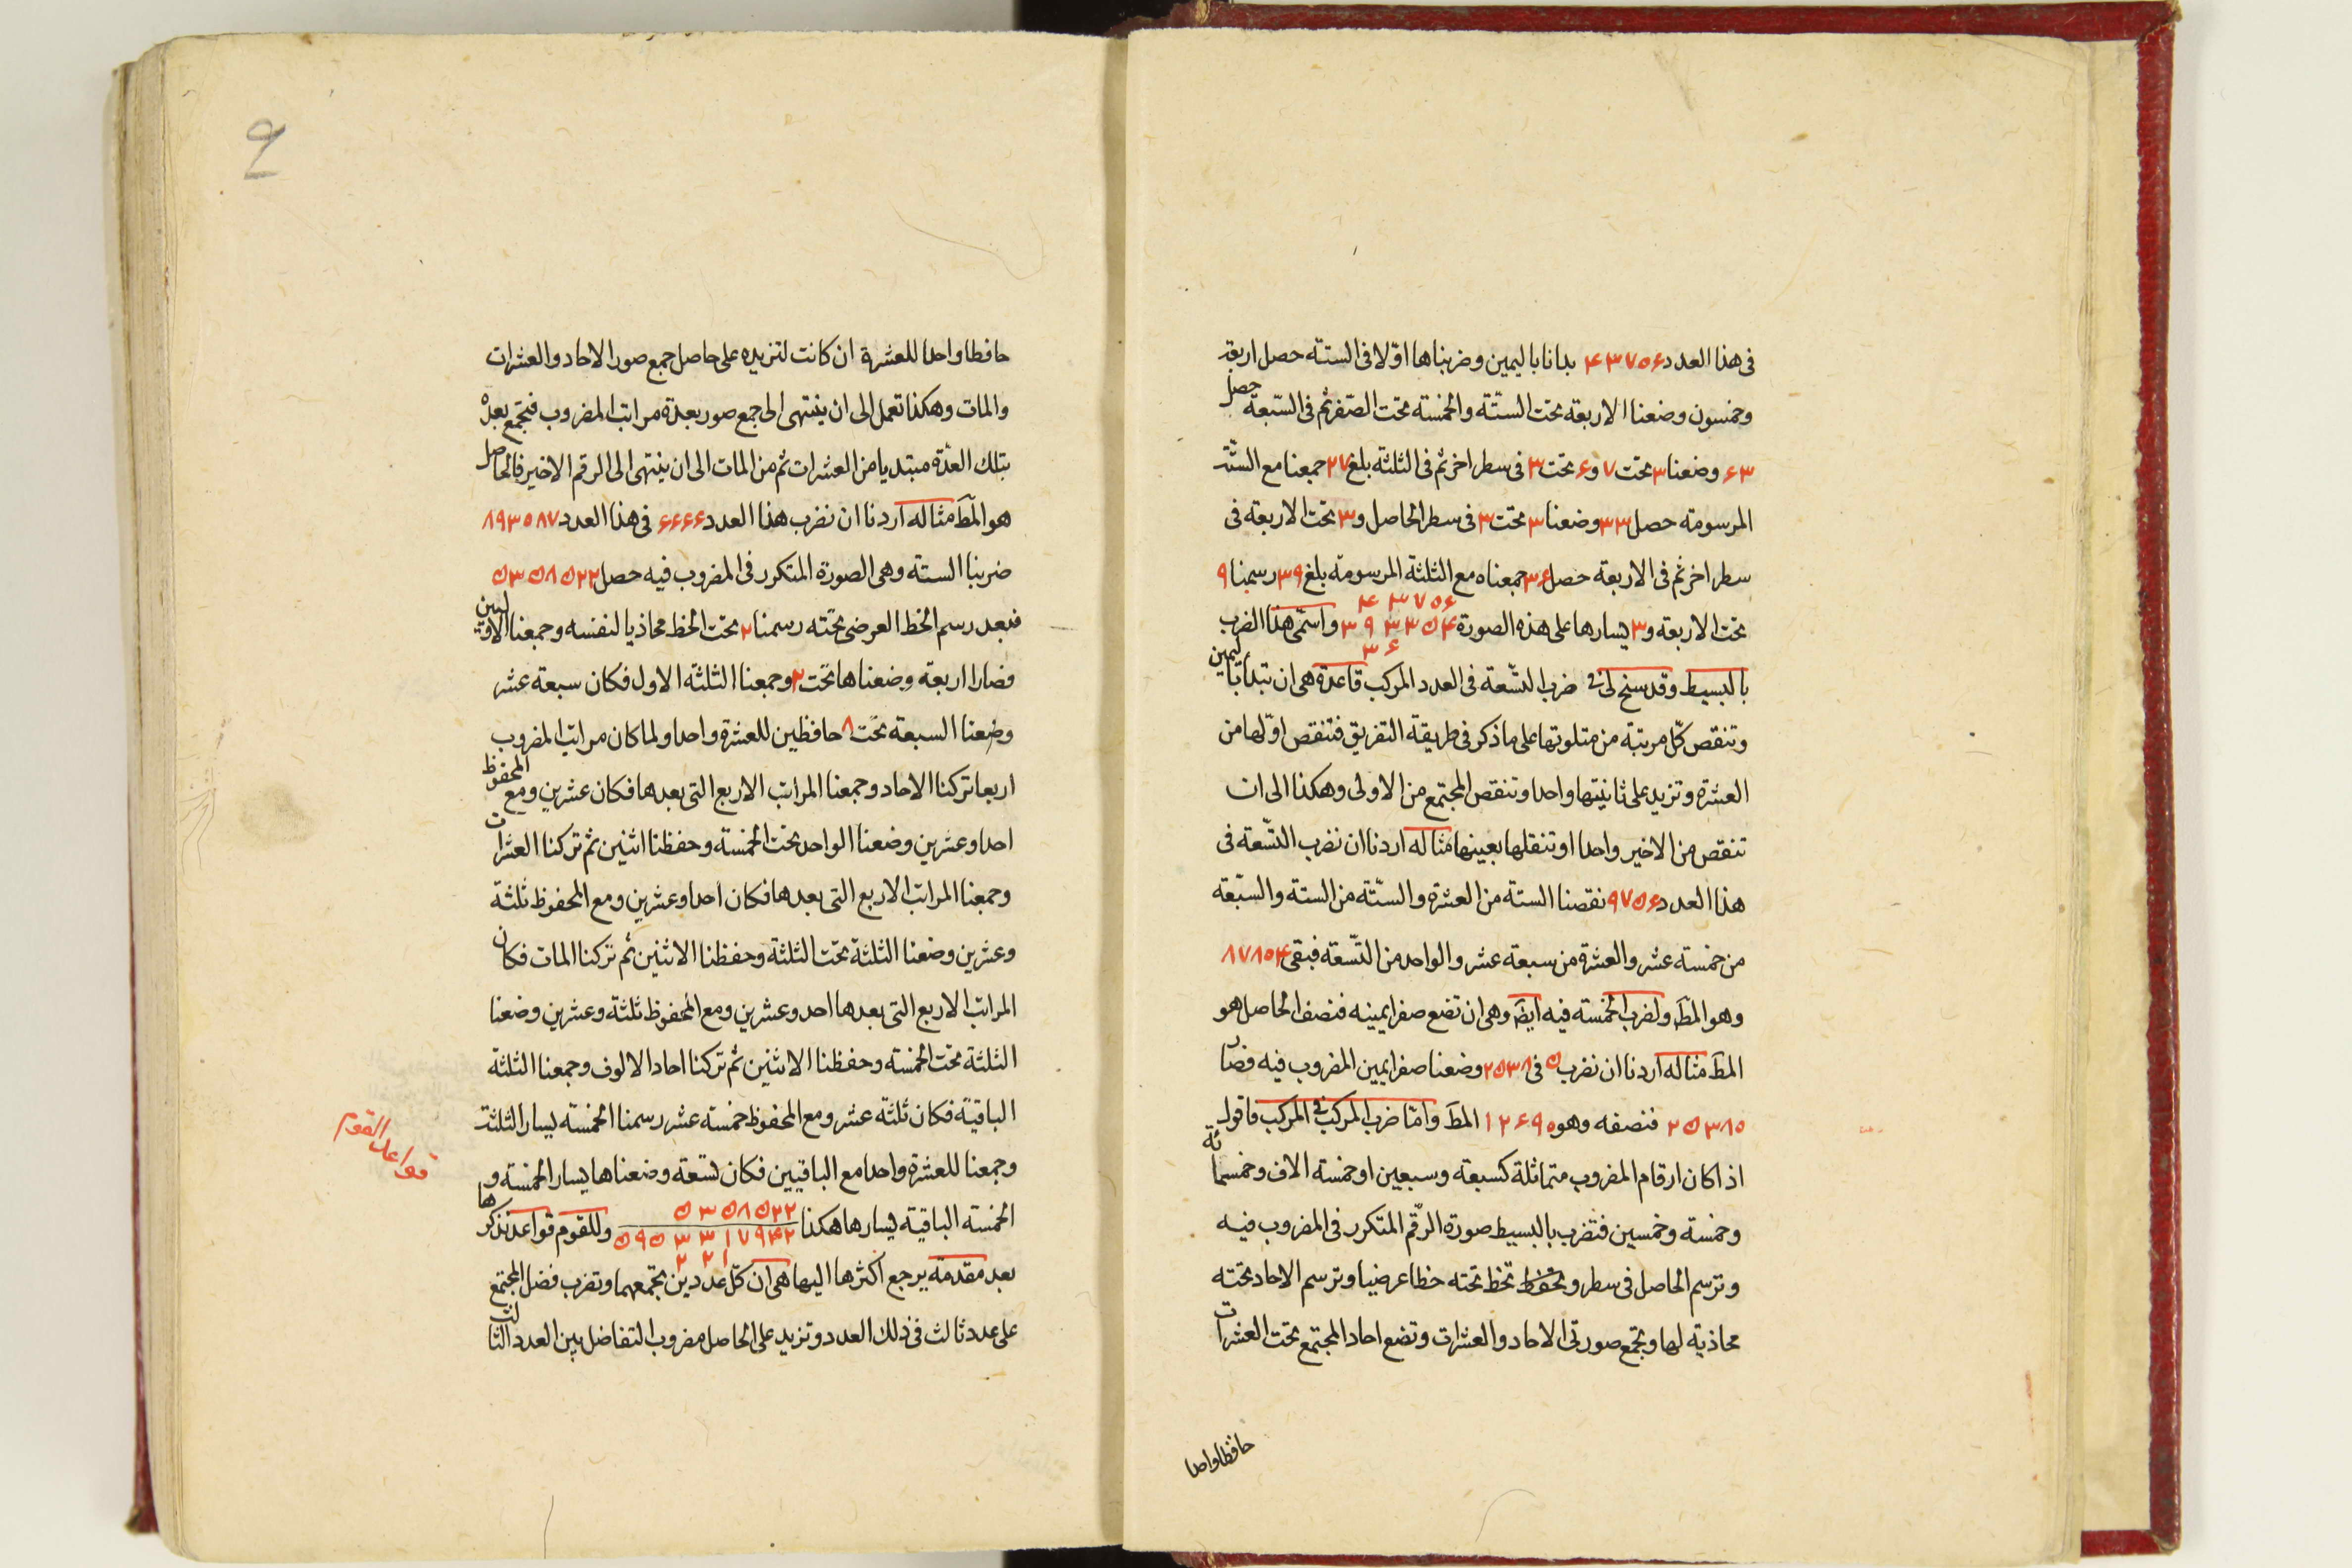 فى هذا العدد ۴۳۷۵۶ بدانا باليمين وضربناها اوّلا فى الستته حصل اربعة
وخمسون وضعنا الاربعة تحت الستّة والخمسة تحت الصّفر ثم فى السّبعة حصل
۶۳ وضعنا ۳ تحت ۷ و۶ تحت ۳ فى سطر اخر ثم فى الثلثة بلغ ۲۷ جمعنا مع الستّة
المرسومة حصل ۳۳ وضعنا ۳ تحت ۳ فى سطر الحاصل و۳ تحت الاربعة فى
سطر اخر ثم فى الاربعة حصل ۳۶ جمعناه مع الثلثة المرسومة بلغ ۳۹ رسمنا ۹
تحت الاربعة و۳ يسارها على هذه الصورة ۴۳۷۵۶ ۳۹۳۳۵۴ ۳۶ واسمّى هذا الضرب
بالبسيط وقد سنح لى فى ضرب التّسعة فى العدد المركب قاعدة هى ان تبدأ باليمين
وتنقص كلّ مرتبة من متلوتها على ما ذكر فى طريقة التفريق فتنقص اوّلها من
العشرة وتزيد على ثانيتها واحدا وتنقص المجتمع من الاولى وهكذا الى ان
تنقص من الاخير واحدا او تنقلها بعينها مثاله اردنا ان نضرب التّسعة فى
هذا العدد ۹۷۵۶ نقصنا الستة من العشرة والستّة من الستة والسبّعة
من خمسة عشر والعشرة من سبعة عشر والواحد من التّسعة فبقى ۸۷۸۰۴
وهو المطَ ولضرب الخمسة فيه ايضَ وهى ان تضع صفرا يمينه فنصف الحاصل هو
المطَ مثاله اردنا ان نضرب ۵ فى ۲۵۳۸ وضعنا صفرا يمين المضروب فيه فصار
۲۵۳۸۰ فنصفه وهو ۱۲۶۹۰ المطَ وامّا ضرب المركب فى المركب فاقول
اذا كان ارقام المضروب متماثلة كسبعة وسبعين او خمسة الاف وخمسمائة
وخمسة وخمسين فتضرب بالبسيط صورة الرّقم المتكرر فى المضروب فيه
وترسم الحاصل فى سطر و تخط تحته خطا عرضيا وترسم الاحاد تحته
محاذية لها وتجمع صورتى الاحاد والعشرات وتضع احاد المجتمع تحت العشرات
حافظا واحدا
حافظا واحدا للعشرة ان كانت لتزيده على حاصل جمع صور الاحاد والعشرات
والمات وهكذا تعمل الى ان ينتهى الى جمع صور بعدة مراتب المضروب فتجمع بعده
بتلك العدّة مبتديا من العشرات ثم من المات الى ان ينتهى الى الرقم الاخير فالحاصل
هو المطَ مثاله اردنا ان نضرب هذا العدد ۶۶۶۶ فى هذا العدد ۸۹۳۵۸۷
ضربنا الستة وهى الصورة المتكرر فى المضروب فيه حصل ۵۳۵۸۵۲۲
فبعد رسم الخط العرضى تحته رسمنا ۲ تحت الخط محاذيا لنفسه وجمعنا الاوليين
فصارا اربعة وضعناها تحت ۲ وجمعنا الثلثة الاول فكان سبعة عشر
وضعنا السبعة تحت ۸ حافظين للعشرة واحدا ولما كان مراتب المضروب
اربعا تركنا الاحاد وجمعنا المراتب الاربع التى بعدها فكان عشرين ومع المحفوظ
احدا وعشرين وضعنا الواحد تحت الخمسة وحفظنا اثنين ثم تركنا العشرات
وجمعنا المراتب الاربع التى بعدها فكان احدا وعشرين ومع المحفوظ ثلثة
وعشرين وضعنا الثلثة تحت الثلثة وحفظنا الاثنين ثم تركنا المات فكان
المراتب الاربع التى بعدها احد وعشرين ومع المحفوظ ثلثة وعشرين وضعنا
الثلثة تحت الخمسة وحفظنا الاثنين ثم تركنا احاد الالوف وجمعنا الثلثة
الباقية فكان ثلثة عشر ومع المحفوظ خمسة عشر رسمنا الخمسة يسار الثلثة
قواعد القوم
وجمعنا للعشرة واحدا مع الباقيين فكان تسعة وضعناها يسار الخمسة و
الخمسة الباقية يسارها هكذا ۵۳۵۸۵۲۲ ۵۹۵۳۳۱۷۹۴۲ ۲۲۱ وللقوم قواعد نذكرها
بعد مقدمة يرجع اكثرها اليها هى ان كلّ عددين تجتمعهما وتضرب فضل المجتمع
على عدد ثالث فى ذلك العدد وتزيد على الحاصل مضروب التفاضل بين العدد الثالث